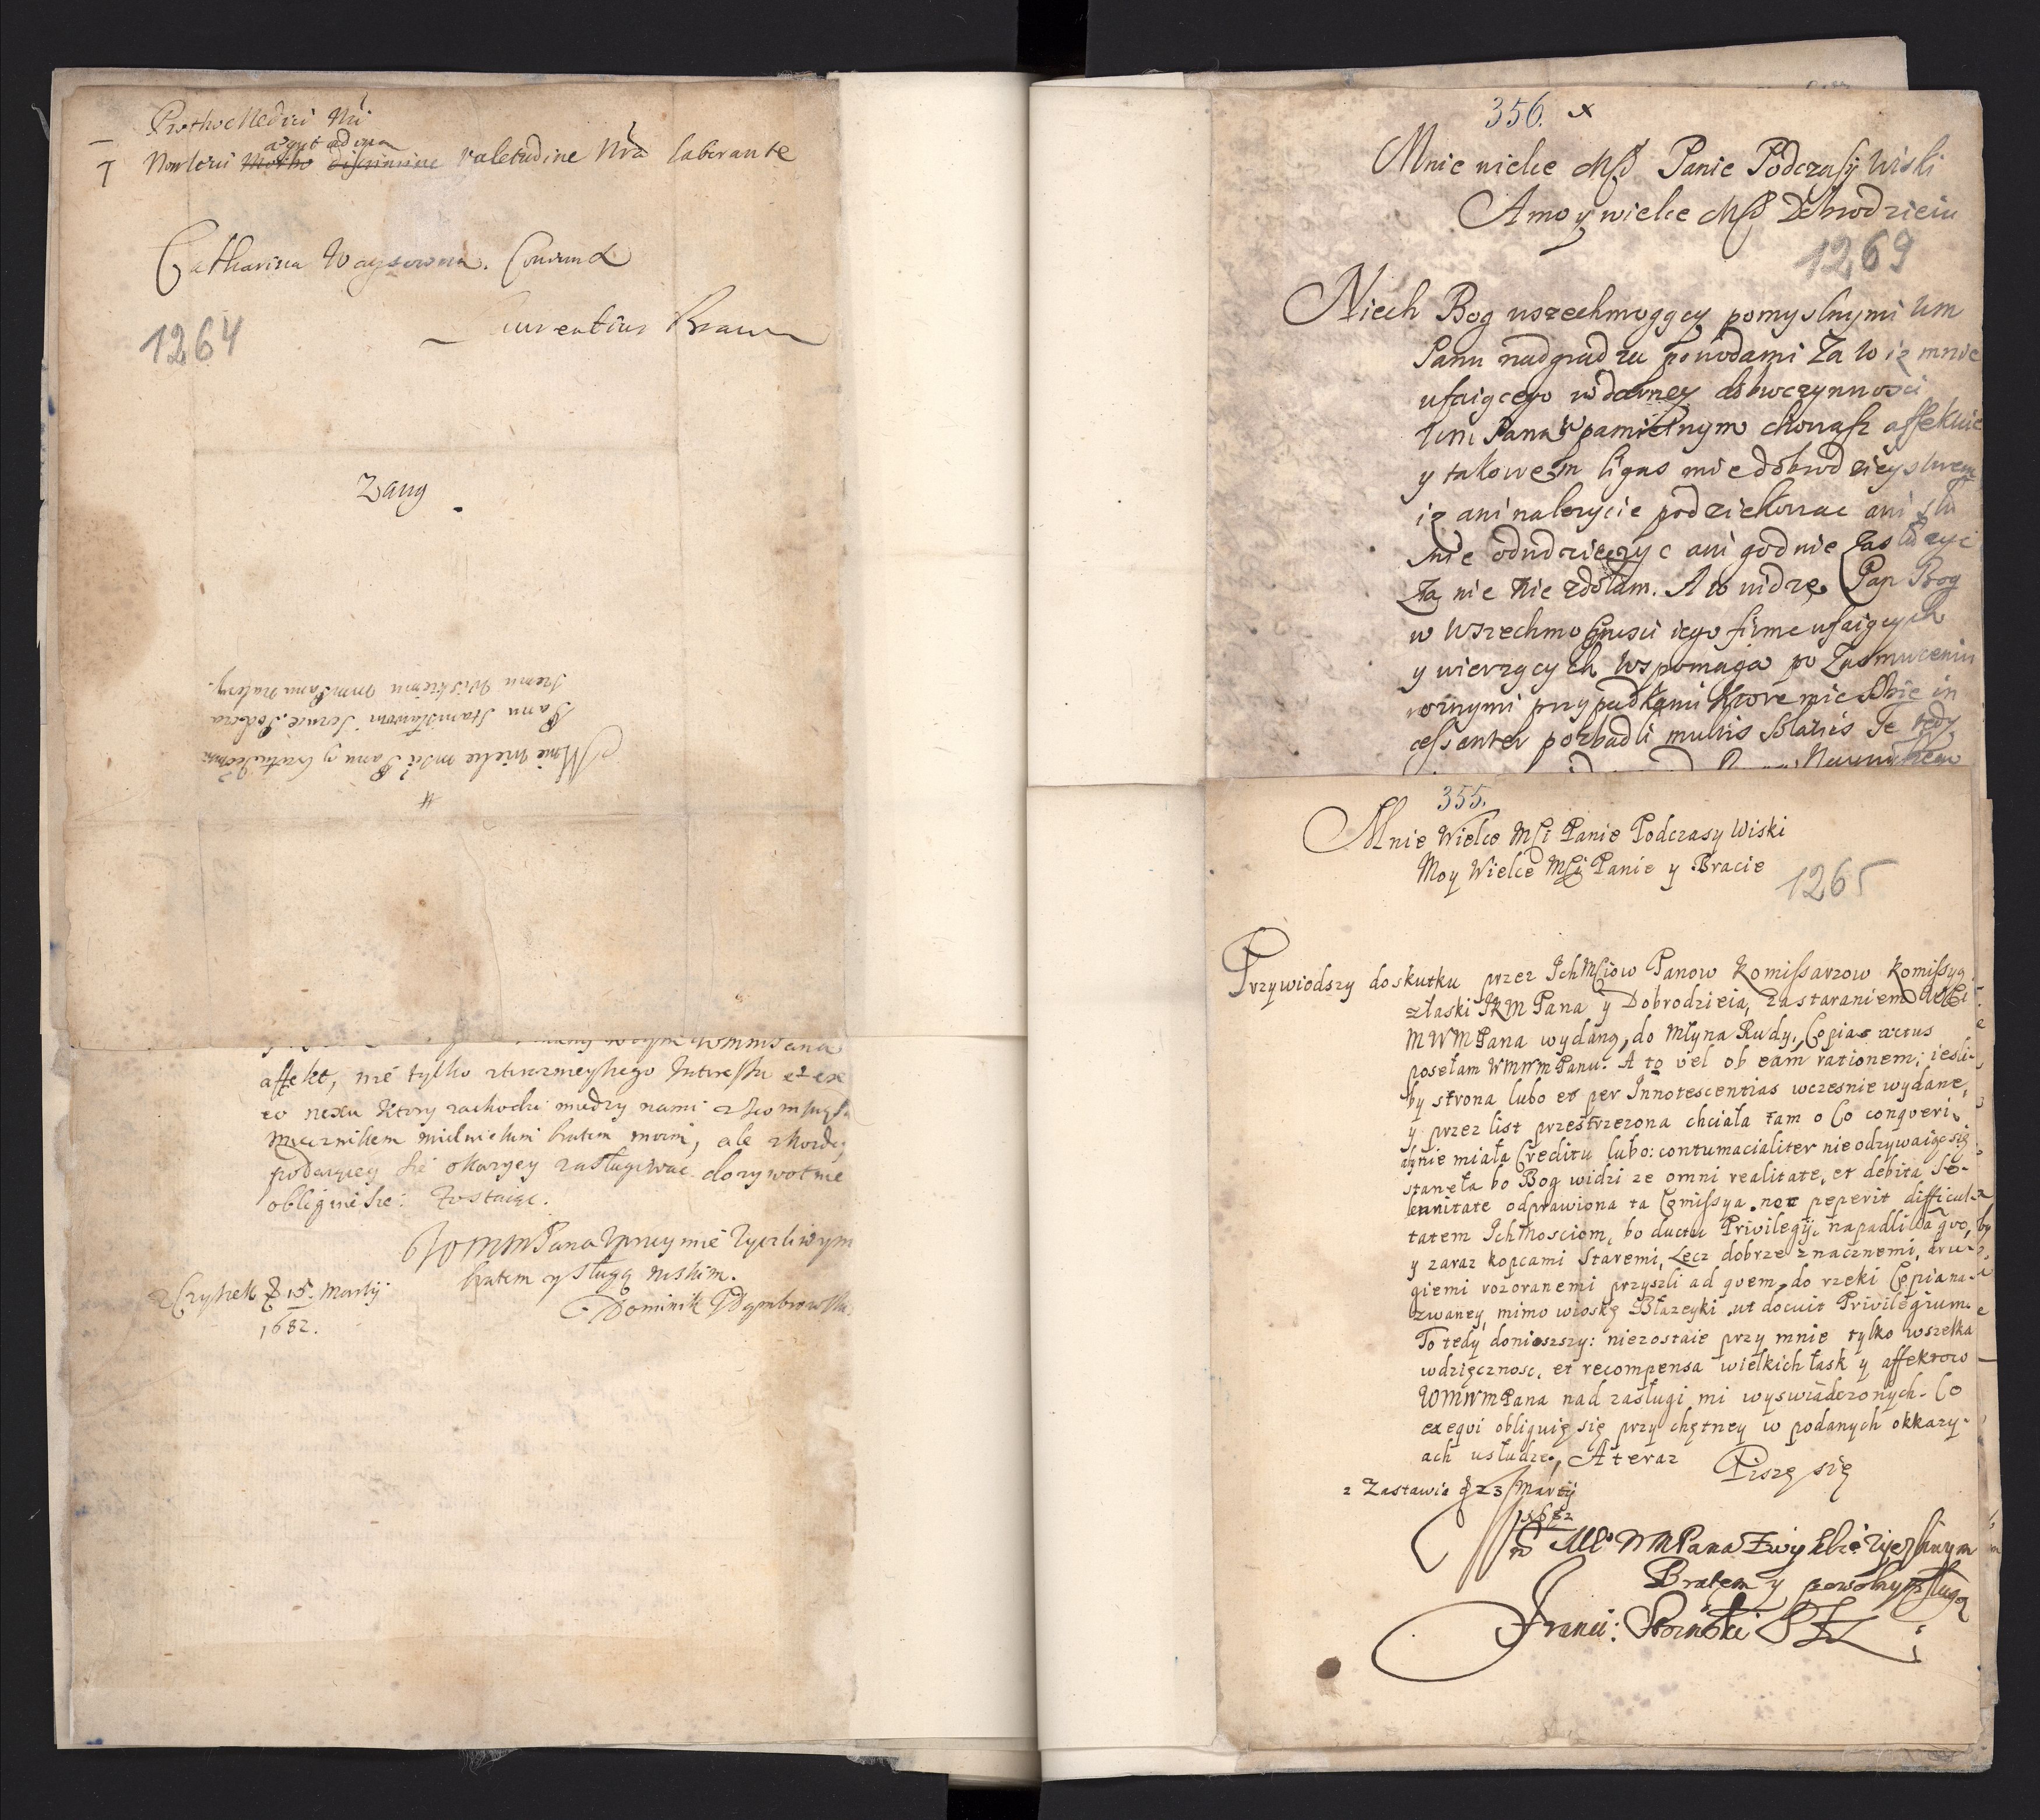 ProthoMedici Nri
agut adina
Nonleui Motho discrimine valetudine Nra laborante
Catharina Conund
Laurentius Braun
1264
Zang
#
Mnie wielce mści Panu y Bratu
Panu Stanisławowi Podcza
szemu Wiskiemu
affekt, nie tylko
eo nexu ktory zachodzi między nami z
Miecznikiem mielnickim bratem moim, ale z każdey
podaiącey się okazyey zasługiwac dozywotnie
obliguie się: Zostaiąc.
WMMPana Uprzeymie życzliwym
bratem y sługą niskim.
D 15. Martij
1682.
Dominik Dąmbrowski
356. x
Mnie wielce Mśc Panie Podczaszy Wiski
A moy wielce Mśc Dobrodzieiu
1269
Niech Bog wszechmogący pomyslnymi Wm
Panu nadgradza powodami Za to iz mnie
ufaiącego w dawney dobroczynnosci
Wm Pana w pamiętnym chowasz affekcie
y takowem ligas mie dobrodzieystwem
iz ani nalezycie podziekowac ani słu
snie odwdzieczyc ani godnie Zasłuzyc
Za nie nie zdołam. A to widzę Pan Bog
w Wszechmocnosci iego firme ufaiących
y wierzących Wspomaga po Zasmuceniu
roznymi przypadkami ktore mie
cessanter pozbadli multis Te tedy
355.
Mnie Wielce Mśi Panie Podczasy Wiski
Moy Wielce Mśi Panie y Bracie
1265
Przywiodszy do skutku przez IchMściow Panow Komissarzow Komissyą
z łaski IKM Pana y Dobrodzieia, za staraniem
MWMPana wydaną, do Młyna Rudy, Copias actus
posełam WMWMPanu. A to vel ob eam rationem; iesli-
by strona lubo et per Innotescentias wczesnie wydane,
y przez list przestrzezona chciała tam o Co conqueri,
aby nie miała Creditu lubo: contumacialiter nie odzywaiąc się
staneła bo Bog widzi ze omni realitate, et debita So-
lennitate odprawiona ta Comissya. nec peperit difficul-
tatem Ichmosciom, bo ductu Privilegij, napadli à quo,
y zaraz kopcami Staremi, Lecz dobrze znacznemi, dru-
giemi rozoranemi przyszli ad quem, do rzeki Copiana-
zwaney, mimo wioskę Błazeyki ut docuit Privilegium.
To tedy donioszszy: niezostaie przy mnie tylko wszelka
wdzięcznosc, et recompensa wielkich łask y affektow
WMWMPana nad zasługi mi wyswiadczonych. Co
exequi obliguię się przy chętney w podanych okkazy-
ach usłudze, A teraz Piszę się
z Zastawia D 23 Martij
1682
WMPana Zwykle życzliwym
Bratem y powolnym sługą
Franci: